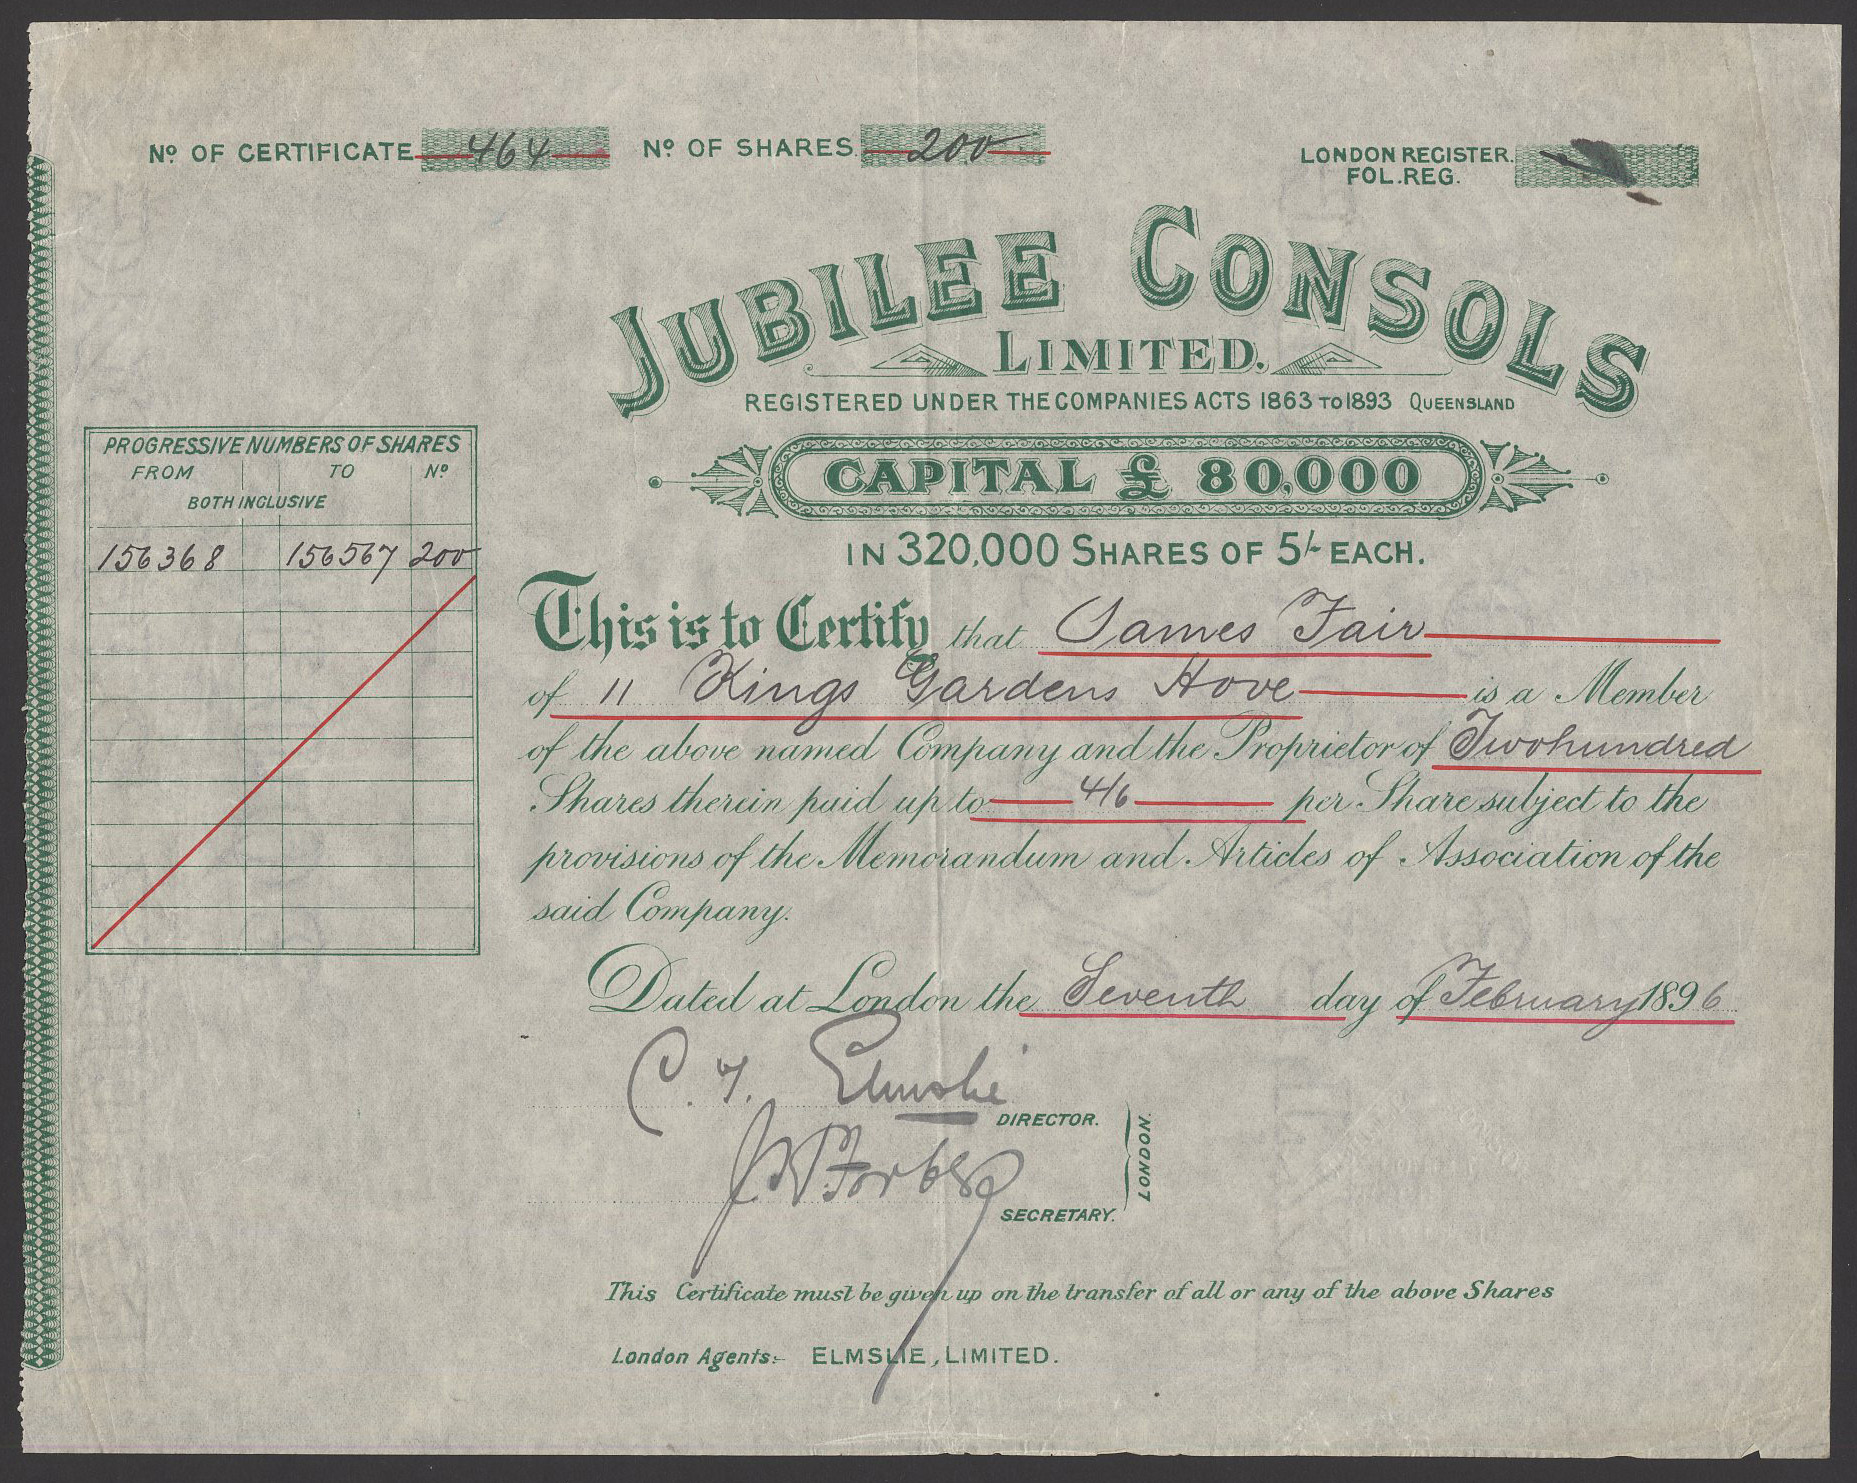 Nº OF CERTIFICATE 464 Nº OF SHARES. 200
LONDON REGISTER.
FOL. REG.
JUBILEE CONSOLS
LIMITED.
REGISTERED UNDER THE COMPANIES ACTS 1863 TO 1893 QUEENSLAND
CAPITAL £ 80,000
IN 320,000 SHARES OF 5/- EACH.
PROGRESSIVE NUMBERS OF SHARES
FROM TO Nº
BOTH INCLUSIVE
156368 156567 200
This is to Certify that James Fair
of 11 Kings Gardens Hove is a Member
of the above named Company and the Proprietor of Twohundred
Shares therein paid up to 4/6 per Share subject to the
provisions of the Memorandum and Articles of Association of the
said Company.
Dated at London the Seventh day of February 1896
C. F. Elmslie
DIRECTOR.
LONDON.
Forbes
SECRETARY.
This Certificate must be given up on the transfer of all or any of the above Shares
London Agents:- ELMSLIE, LIMITED.